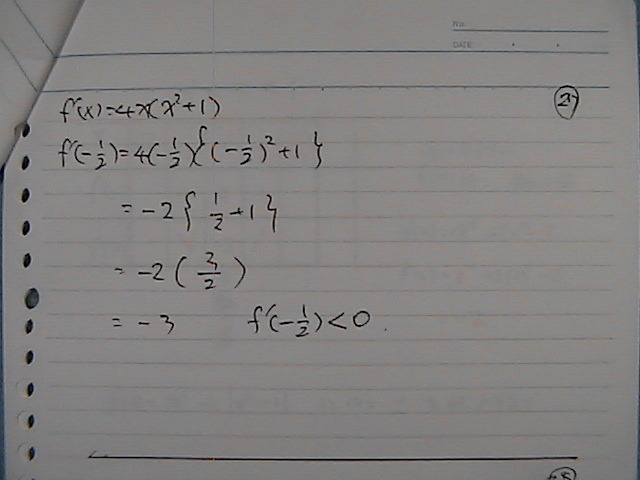 No.
DATE
27
f'(x)=4x(x²+1)
f'(-1/2)=4(-1/2){(-1/2)²+1}
=-2{1/2+1}
=-2(3/2)
=-3 f'(-1/2)<0.